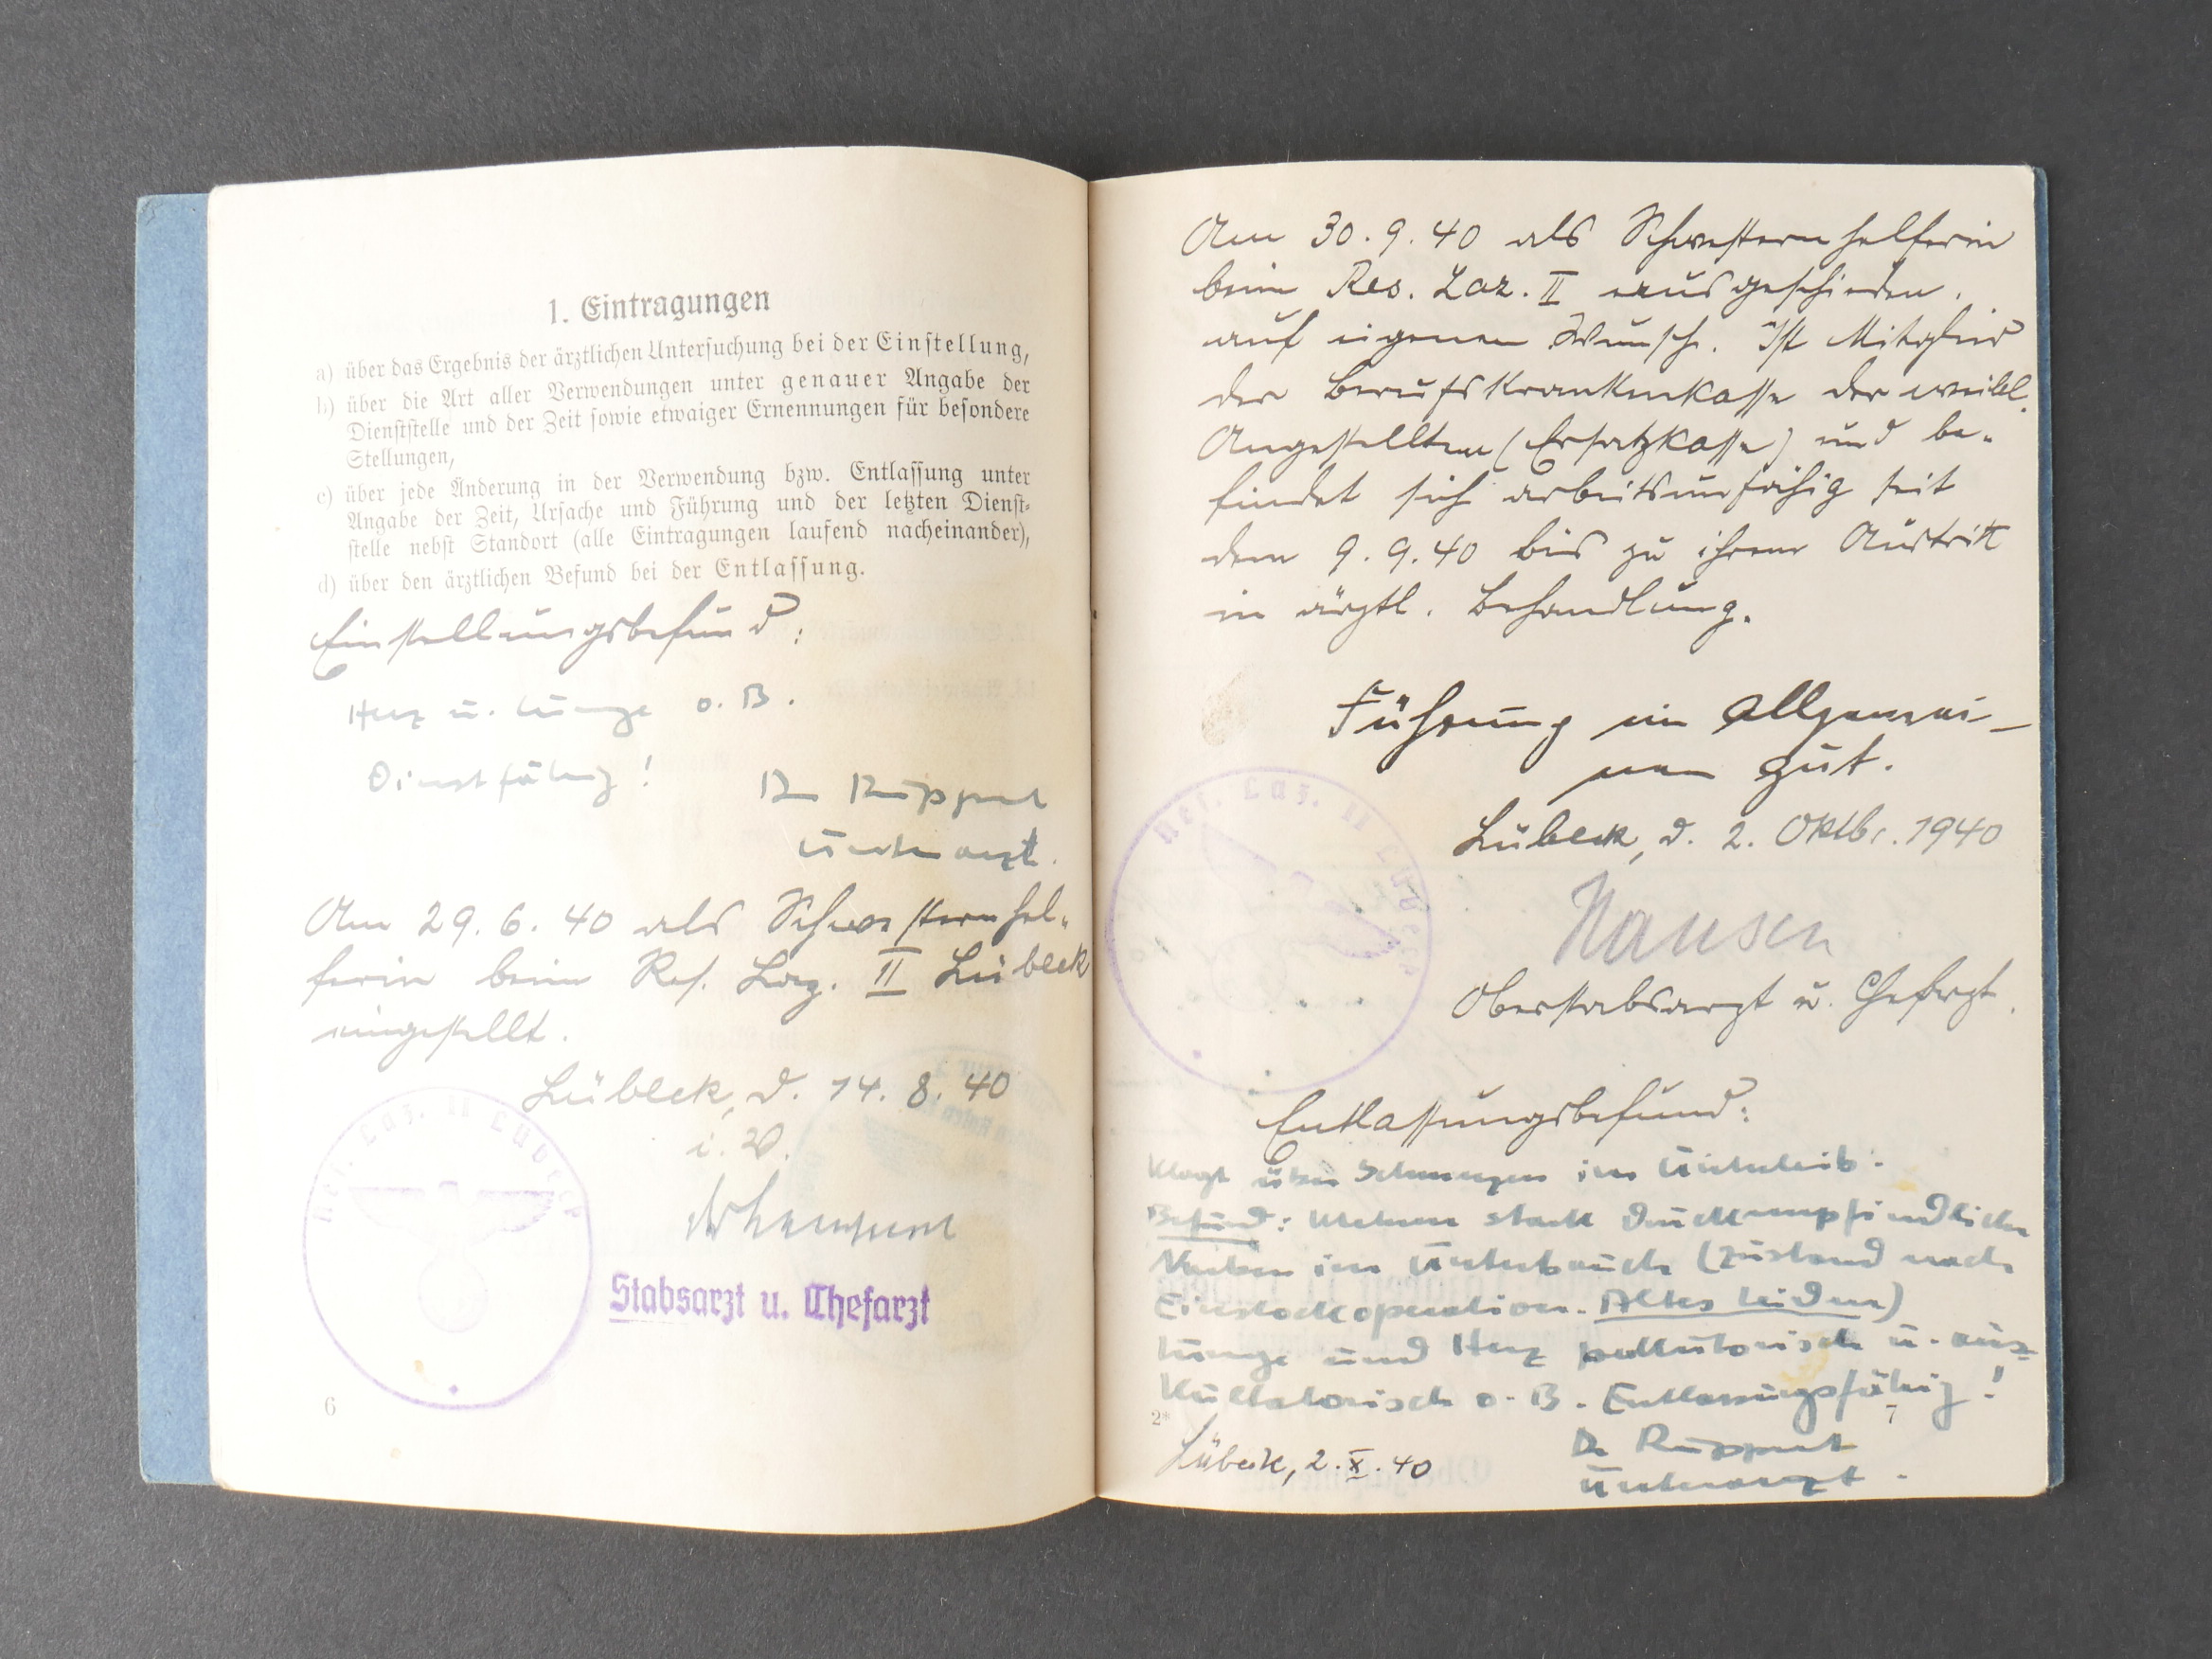 1. Eintragungen
a) über das Ergebnis der ärztlichen Untersuchung bei der Einstellung,
b) über die Art aller Verwendungen unter genauer Angabe der
Dienststelle und der Zeit sowie etwaiger Ernennungen für besondere
Stellungen,
c) über jede Änderung in der Verwendung bzw. Entlassung unter
Angabe der Zeit, Ursache und Führung und der letzten Dienst-
stelle nebst Standort (alle Eintragungen laufend nacheinander),
d) über den ärztlichen Befund bei der Entlassung.
Einstellungsbefund:
Herz u. Lunge o. B.
Dienstfähig!
Dr Ruppert
Unterarzt.
Am 29. 6. 40 als Schwesternhel-
ferin beim Res. Laz. II Lübeck
eingestellt.
Lübeck, d. 14. 8. 40
i. V.
Stabsarzt u. Chefarzt
Res. Laz. II Lübeck
6
Am 30. 9. 40 als Schwesternhelferin
beim Res. Laz. II ausgeschieden,
auf eigenen Wunsch. Ist Mitglied
der Berufskrankenkasse der weibl.
Angestellten (Ersatzkasse) und be-
findet sich arbeitsunfähig seit
dem 9. 9. 40 bis zu ihrem Austritt
in ärztl. Behandlung.
Führung im Allgemei-
nen gut.
Lübeck, d. 2. Oktbr. 1940
Res. Laz. II Lübeck
Hansen
Oberstabsarzt u. Chefarzt.
Entlassungsbefund:
Klagt über Schmerzen im Unterleib.
Befund: Mehrere stark druckempfindliche
Narben im Unterbauch (Zustand nach
Eierstockoperation. Altes Leiden)
Lunge und Herz perkutorisch u. aus-
kultatorisch o. B. Entlassungsfähig!
2*
7
Lübeck, 2. X. 40
Dr Ruppert
Unterarzt.